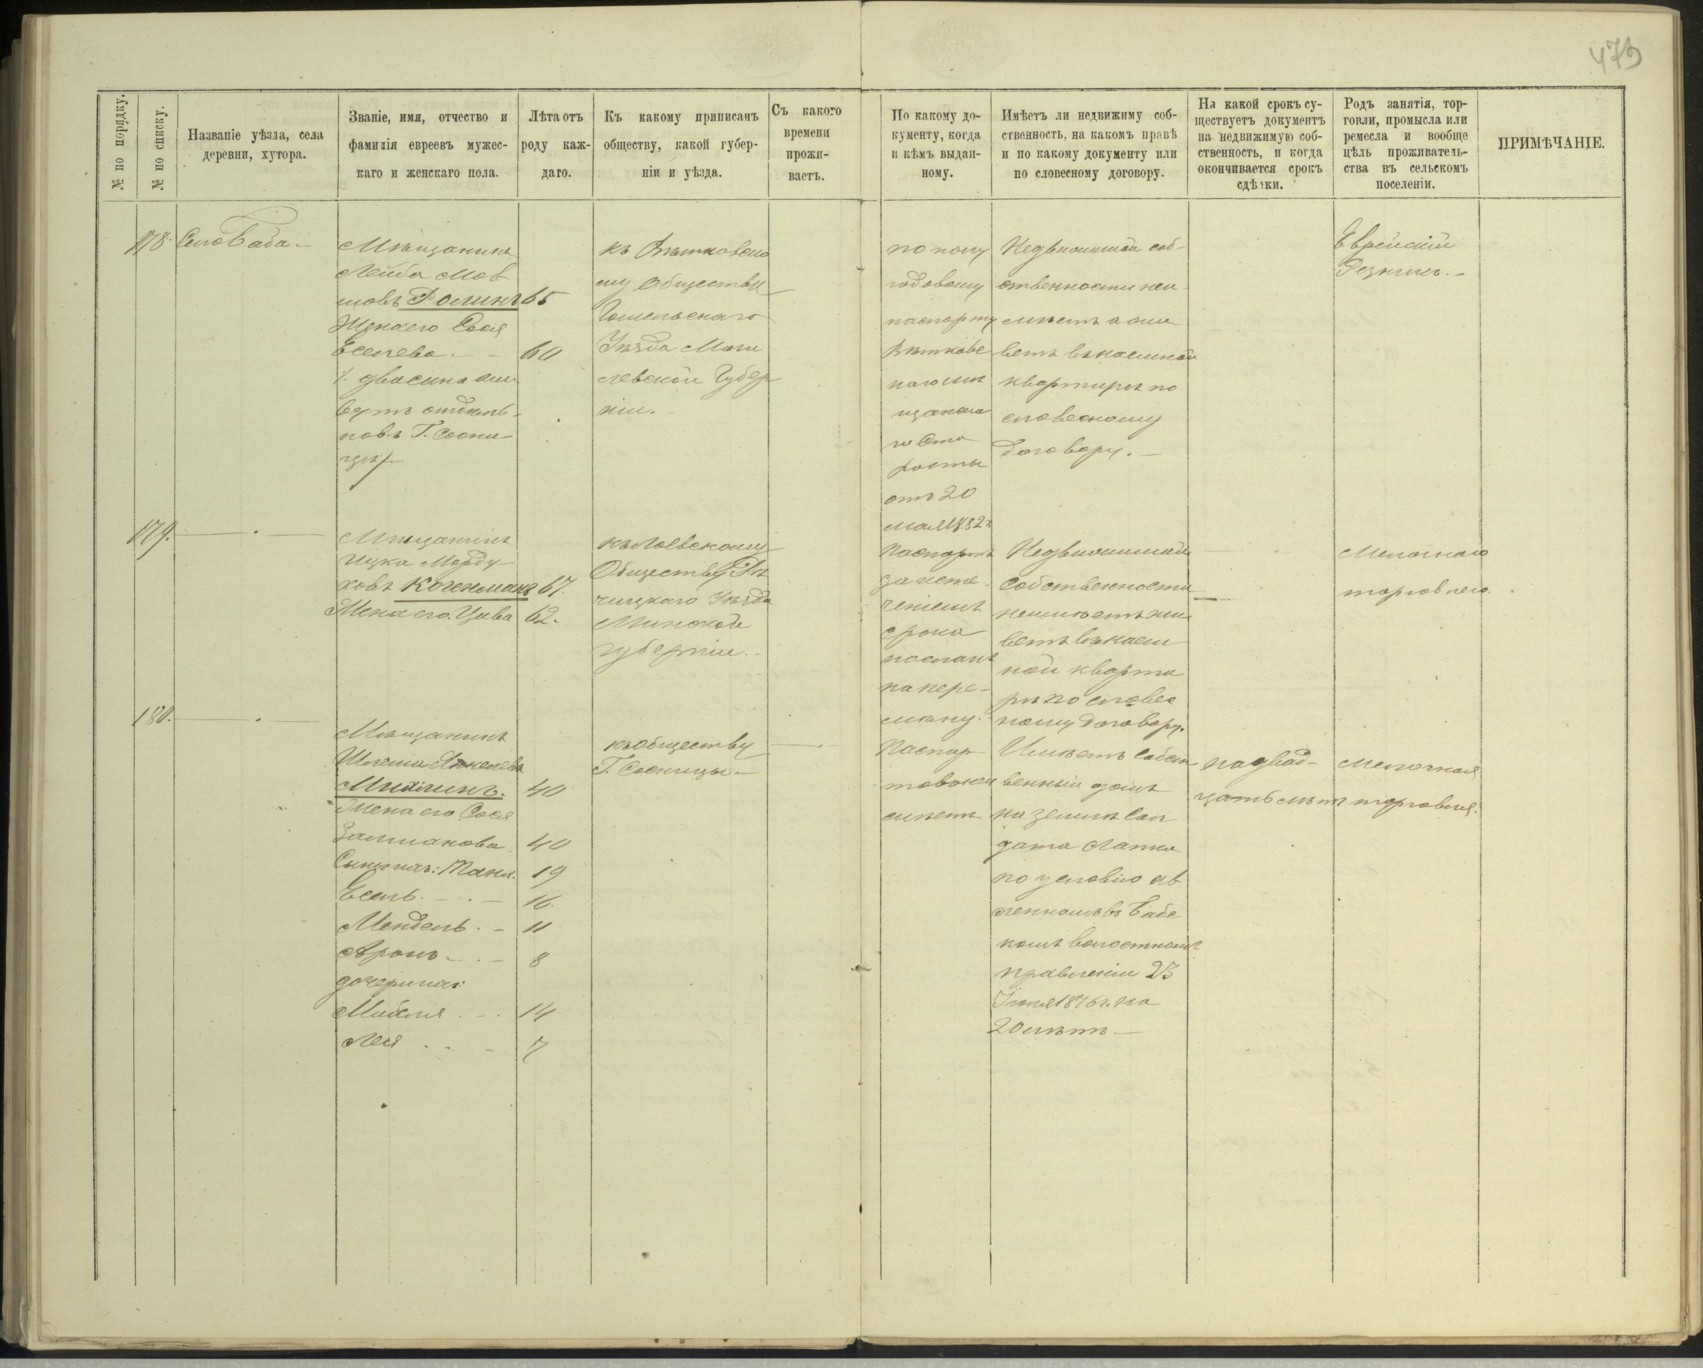 473
№ по порядку.
№ по списку.
Названіе уѣзда, села
деревни, хутора.
Званіе, имя, отчество и
фамилія евреевъ мужес-
каго и женскаго пола.
Лѣта отъ
роду каж-
даго.
Къ какому приписанъ
обществу, какой губер-
ніи и уѣзда.
Съ какого
времени
прожи-
ваетъ.
По какому до-
кументу, когда
и кѣмъ выдан-
ному.
Имѣетъ ли недвижиму соб-
ственность, на какомъ правѣ
и по какому документу или
по словесному договору.
На какой срокъ су-
ществуетъ документъ
на недвижимую соб-
ственность, и когда
окончивается срокъ
сдѣлки.
Родъ занятія, тор-
говли, промысла или
ремесла и вообще
цѣль проживатель-
ства въ сельскомъ
поселеніи.
ПРИМѢЧАНІЕ.
178. Село Баба.
Мѣщанинъ
Лейба Мов
шовъ Ролинъ 65
Жена его Сося
Еселева 60
два сына жи
вутъ отдѣль-
но въ Г. Сосни-
цѣ
Къ Вѣтковско
му Обществу
Гомельскаго
Уѣзда Моги
левской Губер
ніи.
по полу
годовому
паспорту
Вѣтковс
каго мѣ
щанска
го Ста
росты
отъ 20
мая 1882 г
Недвижимой соб-
ственности неи
мѣетъ а жи
ветъ въ наемной
квартирѣ по
словесному
договору.
Еврейскій
Рѣзникъ.
179.
Мѣщанинъ
Ицка Морду-
ховъ Когенманъ 67.
Жена его Цива 62.
къ Лоевскому
Обществу Рѣ
чицкаго Уѣзда
Минской
губерніи.
Паспортъ
за исте-
ченіемъ
срока
посланъ
на пере-
мѣну.
Недвижимой
собственности
неимѣетъ жи
ветъ въ наем
ной кварти
рѣ по словес
ному договору.
Мелочная
торговля.
180.
Мѣщанинъ
Шлема Янкелевъ
Миткинъ. 40
Жена его Сося
Залманова 40
Сыновья: Манъ. 19
Есель 16
Мендель 11
Аронъ 8
дочери ихъ:
Михля 14
Лея 7
къ обществу
Г. Сосницы
Паспор
товъ неи
мѣетъ
Имѣетъ собст
венный домъ
на землѣ Сол
дата Лапка
по условію яв
ленномъ въ Бабс
комъ волостномъ
правленіи 23
Іюня 1876 г. на
20 лѣтъ
на двад-
цать лѣтъ
мелочная
торговля.